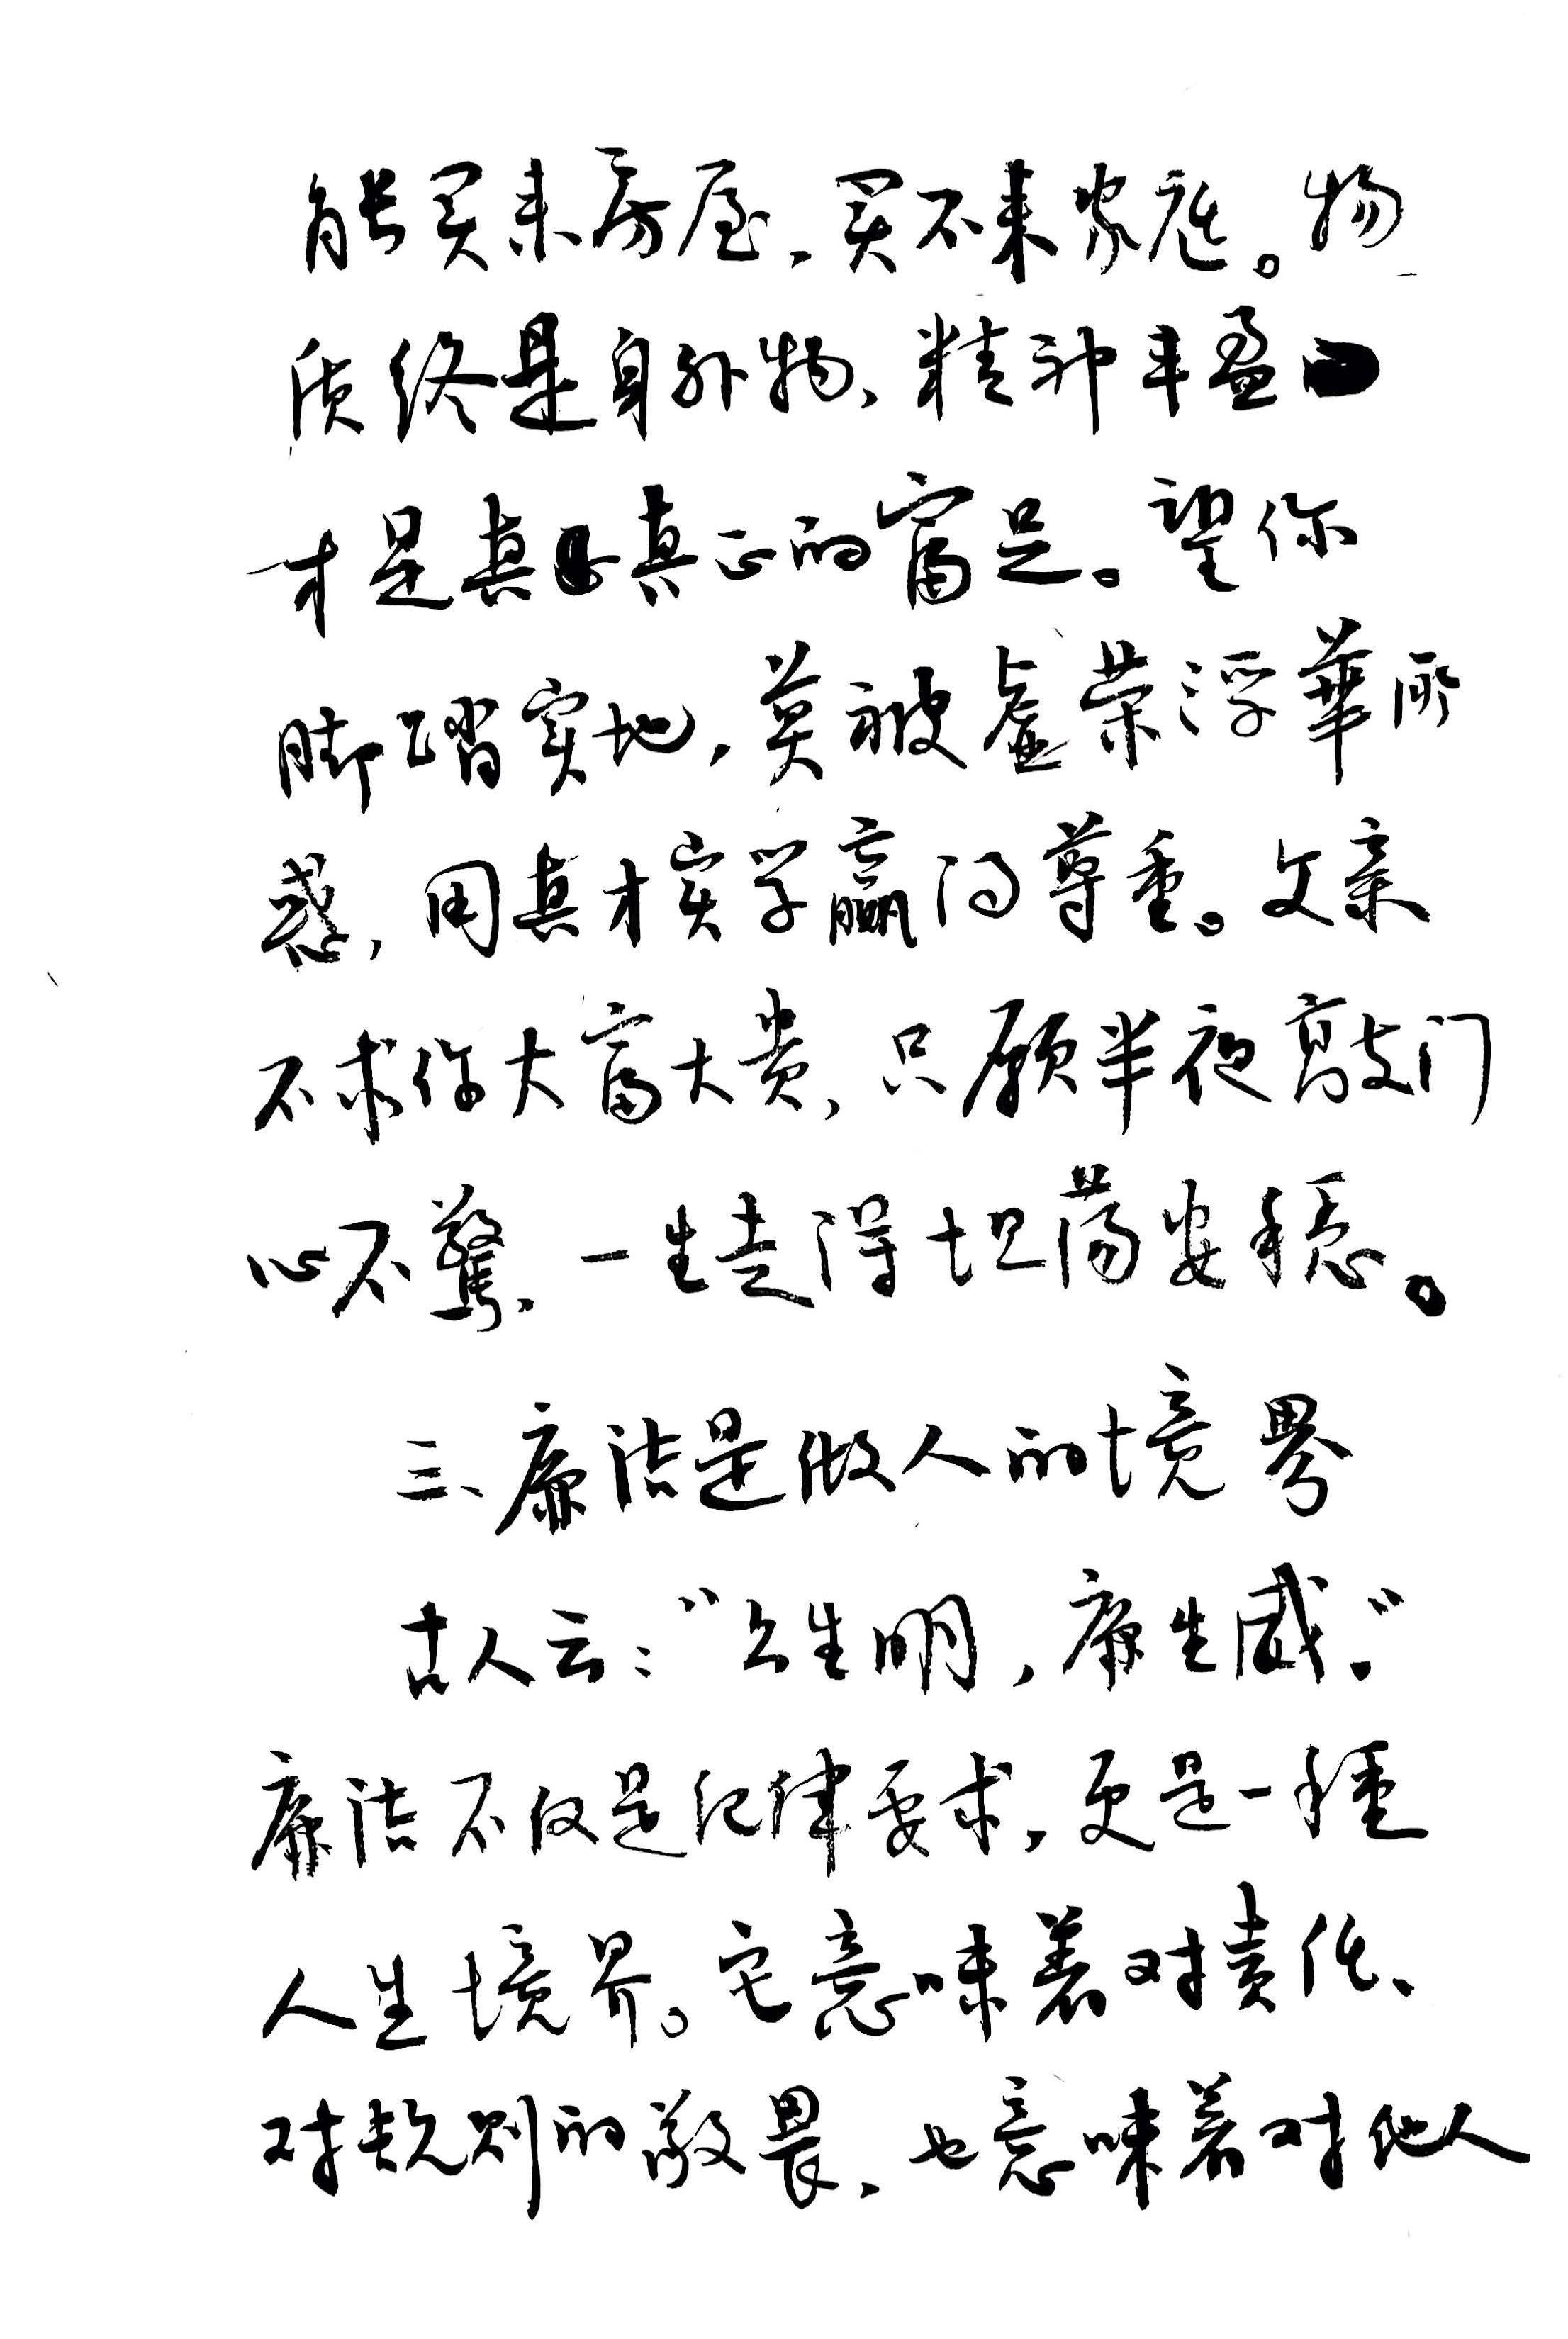 能买来房屋，买不来家庭。物
质终是身外物，精神丰盈
才是真真正的富足。望你
脚踏实地，莫被虚荣浮華所
惑，用真才实学赢得尊重。父亲
不求你大富大贵，只愿半夜敲门
心不驚，一生走得坦荡安稳。
三、廉洁是做人的境界
古人云：“公生明，廉生威。”
廉洁不仅是纪律要求，更是一種
人生境界。它意味着对责任、
对规则的敬畏，也意味着对他人